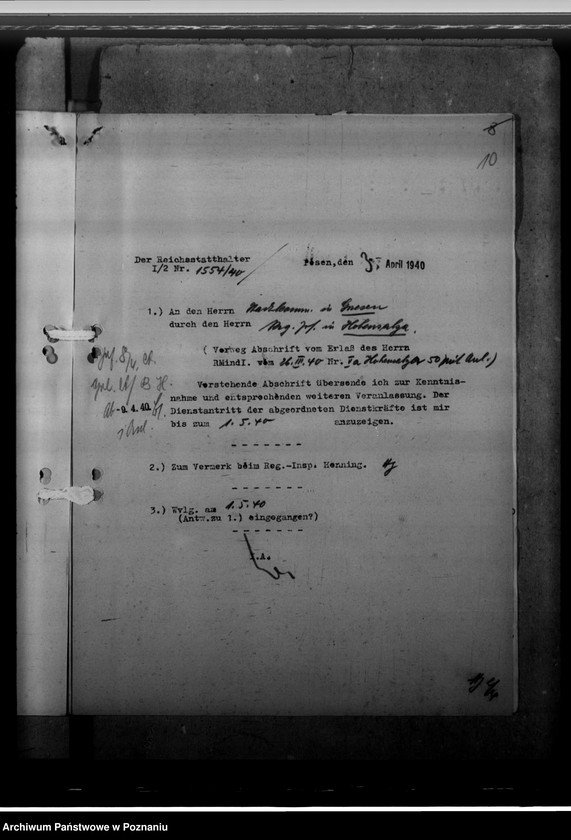 8
10
Der Reichsstatthalter
I/2 Nr. 1554/40
Posen, den 3. April 1940
1.) An den Herrn Landkomm. in Gnesen
durch den Herrn Reg. Präs. in Hohensalza.
( Vorweg Abschrift vom Erlaß des Herrn
RMindI. vom 26.III.40 Nr. Va Hohensalza 50 mit Anl.)
Verstehende Abschrift übersende ich zur Kenntnis-
nahme und entsprechenden weiteren Veranlassung. Der
Dienstantritt der abgeordneten Dienstkräfte ist mir
bis zum 1.5.40 anzuzeigen.
2.) Zum Vermerk beim Reg.-Insp. Henning.
3.) Wvlg. am 1.5.40
(Antw.zu 1.) eingegangen?)
I.A.
ab -9. 4. 40.
1 Anl.
Archiwum Państwowe w Poznaniu